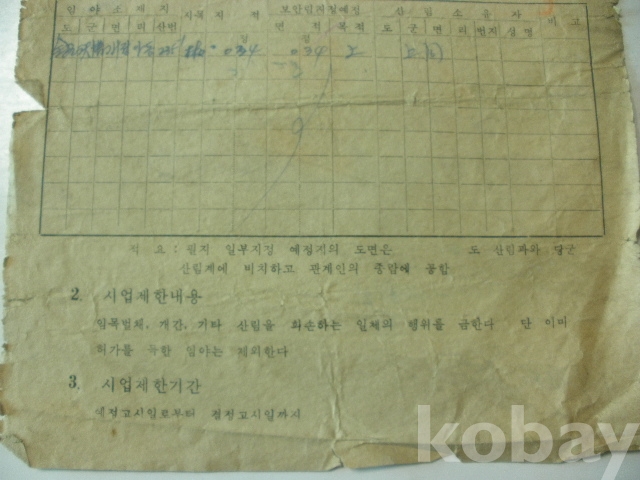 임야소재지 지목 지적 보안림지정예정 산림소유자 비고
도 군 면 리 산번 면적 목적 도 군 면 리 번지 성명
034 034
적 요 : 필지 일부지정 예정지의 도면은 도 산림과와 당군
산림계에 비치하고 관계인의 종람에 공함
2. 사업제한내용
입목벌채, 개간, 기타 산림을 훼손하는 일체의 행위를 금한다 단 이미
허가를 득한 임야는 제외한다
3. 사업제한기간
예정고시일로부터 결정고시일까지
kobay